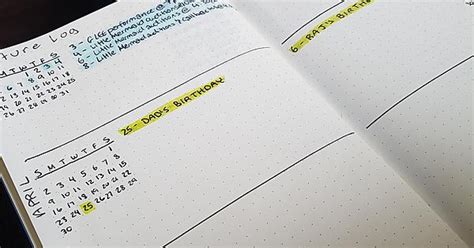 ture Log
M T W T F S
1 2 3 4
6 7 8 9 10 11
13 14 15 16 17 18
20 21 22 23 24 25
26 27 28 29 30
3 - performance @
4 - Little Mermaid auditions @
6 - Little Mermaid auditions @
8 - Little Mermaid auditions
25 - DAD'S BIRTHDAY
S M T W T F S
1
2 3 4 5 6 7 8
9 10 11 12 13 14 15
16 17 18 19 20 21 22
23 24 25 26 27 28 29
30
6 - RAJ'S BIRTH